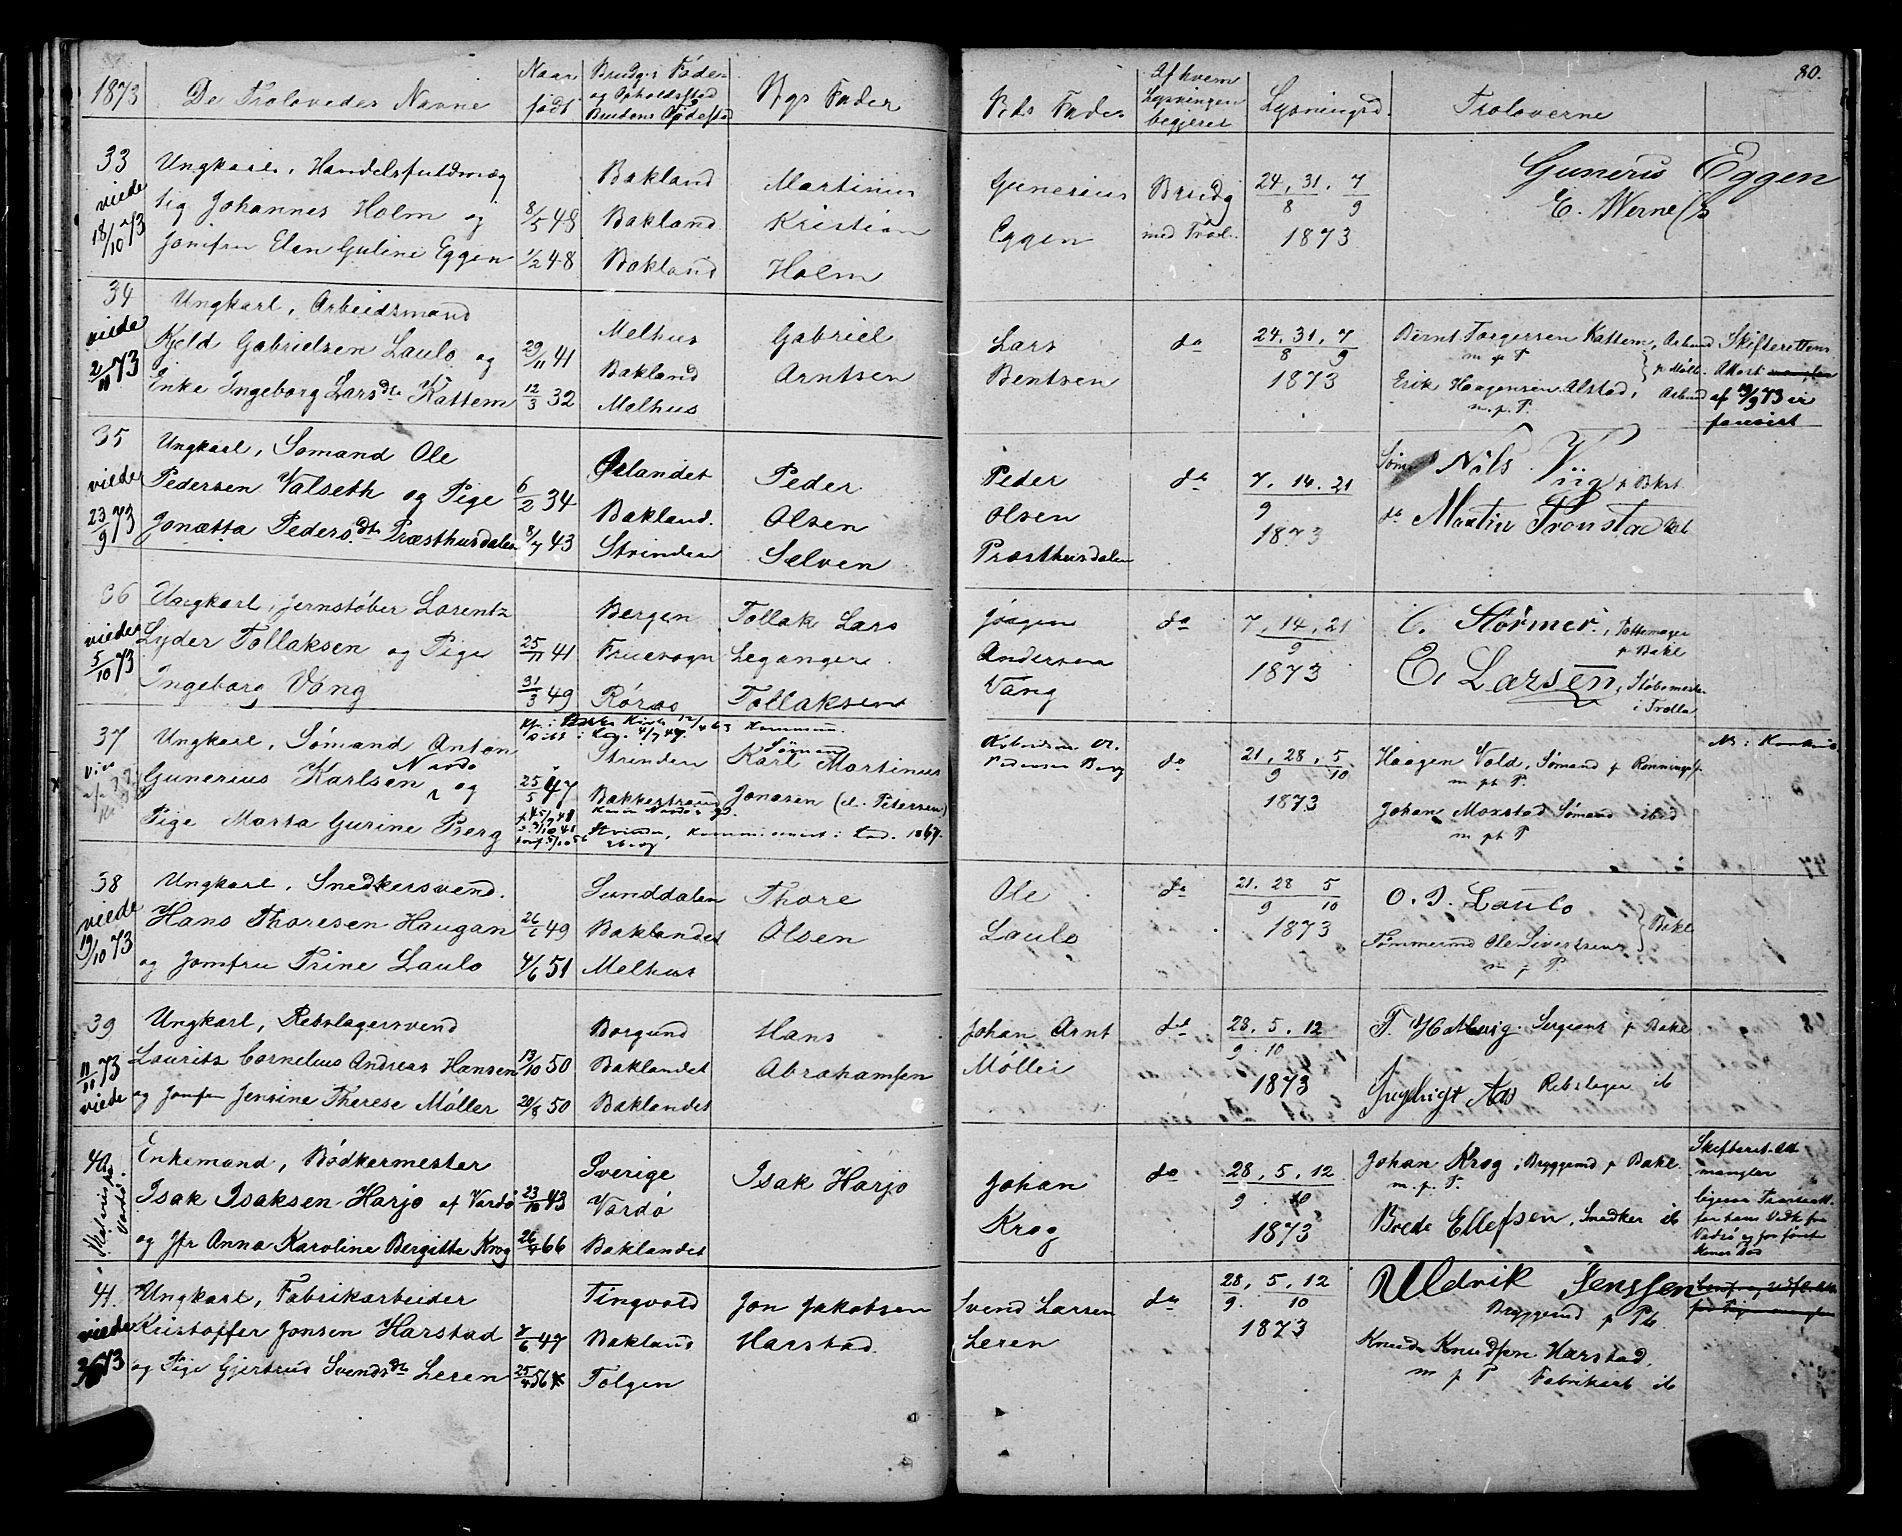 1873
De Troloveder Navne
Naar
født
Brudgs Føde-
og Opholdssted
Brudens Fødested
Bgs Fader
Bds Fader
Af hvem
Lysningen
begjeres
Lysningsd.
Troloverne
80.
33
viede
18/10 73
Ungkarl, Handelsfuldmæg
tig Johannes Holm og
Jomfru Elen Guline Eggen
8/5 48
1/2 48
Bakland
Bakland
Bakland
Martinus
Kristian
Holm
Gunerius
Eggen
Brudg
med Trol.
24. 31. 7
8 9
1873
Gunerius Eggen
E. Werne
34
viede
2/11 73
Ungkarl, Arbeidsmand
Kjeld Gabrielsen Laulo og
Enke Ingeborg Larsdtr Kattem
29/11 41
12/3 32
Melhus
Bakland
Melhus
Gabriel
Arntsen
Lars
Bentsen
do
24. 31. 7
8 9
1873
Bernt Torgersen Kattem, Arbmd
m p P
Erik Haagensen Alstad, Arbmd
m. p. P.
Skifterettens
Attest
af 19/9 73 er
forevist
35
viede
23/9 73
Ungkarl, Sømand Ole
Pedersen Valseth og Pige
Jonetta Pedersdtr Præsthusdalen
6/2 34
8/7 43
Ørlandet
Bakland.
Strinden
Peder
Olsen
Selven
Peder
Olsen
Præsthusdalen
do
7. 14. 21
9
1873
Nils Viig p Bkl.
do Martin Tronstad
36
viede
5/10 73
Ungkarl, Jernstøber Lorentz
Lyder Tollaksen og Pige
Ingeborg Vang
25/11 41
31/3 49
Bergen
Fruesogn
Røros
Tollak Lars
Leganger
Tollaksen
Jørgen
Andersen
Vang
do
7. 14. 21
9
1873
C. Størmer, Pottemager
p Bakl
E. Larsen, Støbemester
i Trolla
37
Ungkarl, Sømand Anton
Nardo
Gunerius Karlsen, og
Pige Marta Gurine Berg
25/5 47
Strinden
Bakkestrand
Strinden,
Sømand
Karl Martinus
Jonasen (el. Petersen)
Pedersen Berg
do
21. 28. 5
9 10
1873
Haagen Vold, Sømand p Rønningsl.
m pt P.
Johan Moxstad Sømand ibid
m pt P
38
viede
19/10 73
Ungkarl, Snedkersvend.
Hans Thoresen Haugan
og Jomfru Trine Laulo
26/6 49
4/6 51
Sunddalen
Baklandet
Melhus
Thore
Olsen
Ole
Laulo
do
21. 28 5
9 10
1873
O. J. Laulo
Tømmermd Ole Sivertsen
m p P.
Bakl
39
11/11 73
viede
Ungkarl, Rebslagersvend
Lauritz Cornelius Andreas Hansen
og Jomfru Jensine Therese Møller
19/10 50
20/8 50
Borgund
Baklandet
Baklandet
Hans
Abrahamsen
Johan Arnt
Møller
do
28. 5. 12
9. 10
1873
T. Hatling. Sergeant p Bakl.
Ingbrigt Aas Rebslager ib
40
Enkemand, Bødkermester
Isak Isaksen Harjo af Vardø
og Jfr Anna Karoline Bergitte Krog
23/10 43
Sverige
Vardø
Baklandet
Isak Harjo
Johan
Krog
do
28. 5. 12
9. 10
1873
Johan Krog, Bryggemd p Bakl.
m. p. P.
Brede Ellefsen, Snedker ib
Skifteret. Att
mangler
41.
viede
Ungkarl, Fabrikarbeider
Kristoffer Jonsen Harstad
og Pige Gjertrud Svendsdtr Leren
7/6 47
Tingvold
Bakland
Tolgen
Jon Jakobsen
Harstad.
Svend Larsen
Leren
do
28. 5. 12
9. 10
1873
Uldrik Jenssen
Bryggemd p
Knud Knudsen Harstad.
m p P Fabrikarb ib